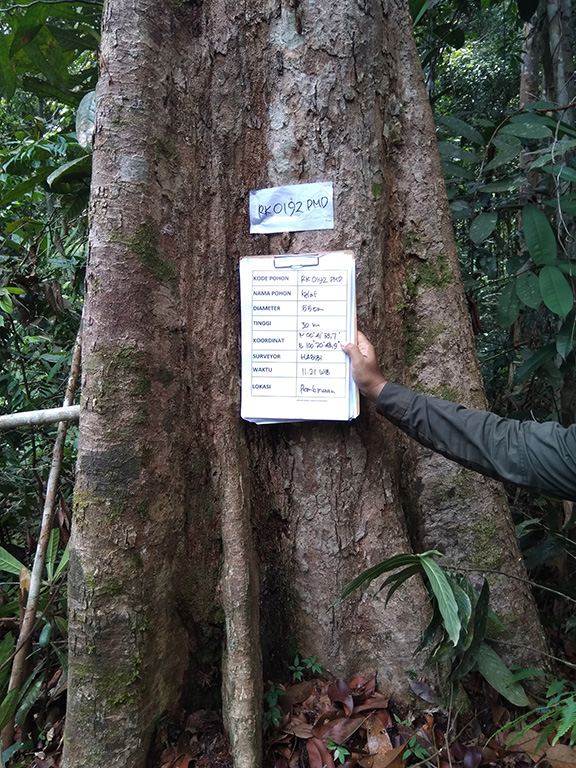 RK 0192 PMD
KODE POHON RK 0192 PMD
NAMA POHON Kelat
DIAMETER 55 cm
TINGGI 30 m
KOORDINAT N 00° 41' 
E 100° 20'
SURVEYOR HABIBI
WAKTU 11.21 WIB
LOKASI